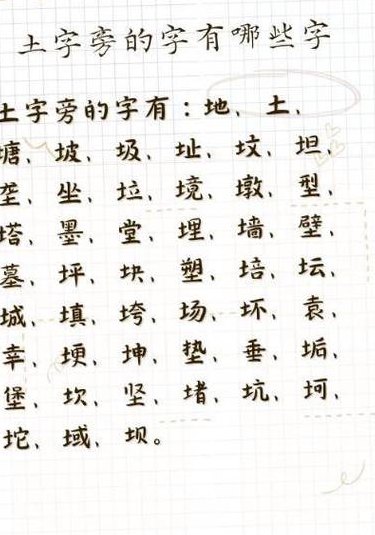 土字旁的字有哪些字
土字旁的字有：地、土、
塘、坡、圾、址、坟、坦、
垄、坐、垃、境、墩、型、
塔、墨、堂、埋、墙、壁、
墓、坪、块、塑、培、坛、
城、填、垮、场、坏、袁、
幸、埂、坤、垫、垂、垢、
堡、坎、坚、堵、坑、坷、
坨、域、坝。